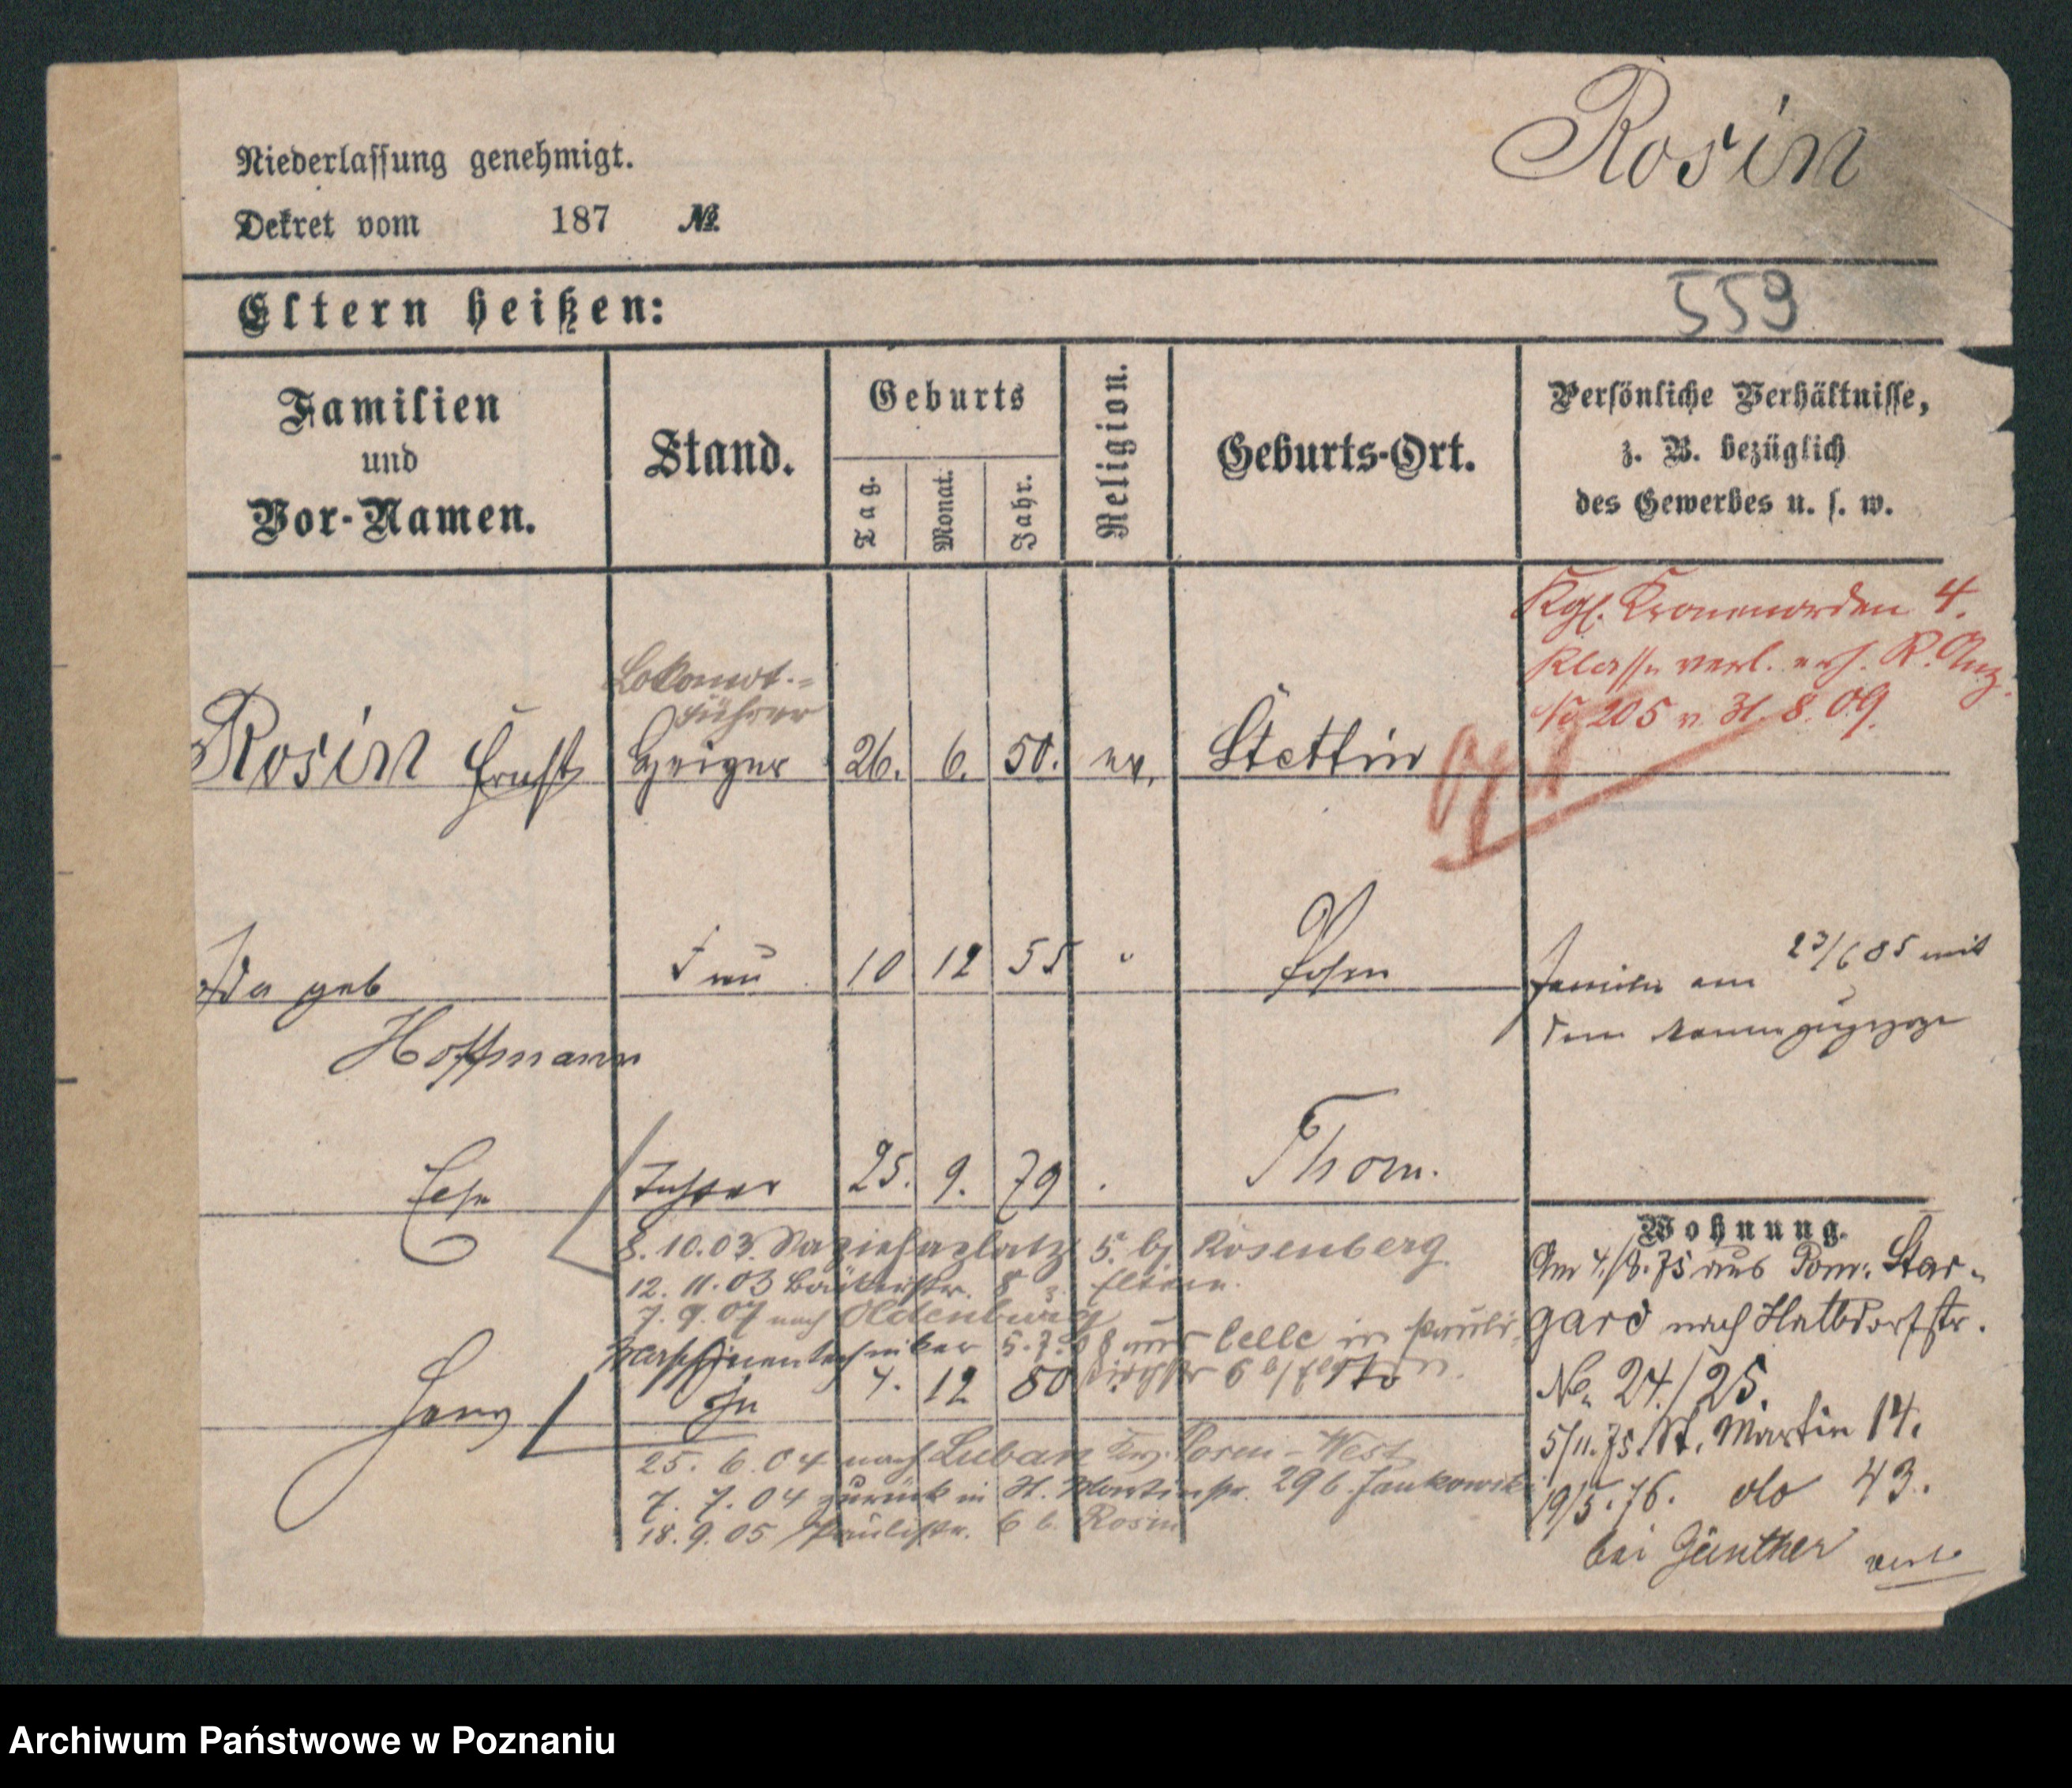 Rosin
Niederlassung genehmigt.
Dekret vom 187 №
Eltern heißen:
559
Familien
und
Vor-Namen.
Stand.
Geburts
Tag.
Monat.
Jahr.
Religion.
Geburts-Ort.
Persönliche Verhältnisse,
z. B. bezüglich
des Gewerbes u. s. w.
Kgl. Kronenorden 4.
Klasse verl. erh. R. Anz.
No 205 v. 31. 8. 09.
Lokomot.-
führer
Rosin Ernst Heizer 26. 6. 50. ev. Stettin
Ida geb Frau 10 12 55 " Posen
Hoffmann
Familie am 23/6 85 mit
dem Manne zugezogen
Else Tochter 25. 9. 79 . Thorn.
8. 10. 03. Sapiehaplatz 5. b/ Rosenberg
12. 11. 03 Bäckerstr. 8 z. Eltern.
7. 9. 07 nach Oldenburg
Maschinentechniker 5. 7. 08 aus Celle in Pauli
kirchstr 6 b/
Georg Sohn 4. 12 80
25. 6. 04 nach Luban Krs. Posen-West
7. 7. 04 zurück in St. Martinstr. 29 b. Jankowski
18. 9. 05 Paulistr. 6 b. Rosin
Wohnung.
Am 4./8. 75 aus Pom: Star-
gard nach Halbdorfstr.
No. 24./25.
5/11. 75. St. Martin 14.
19/5. 76. do 43.
bei Günther